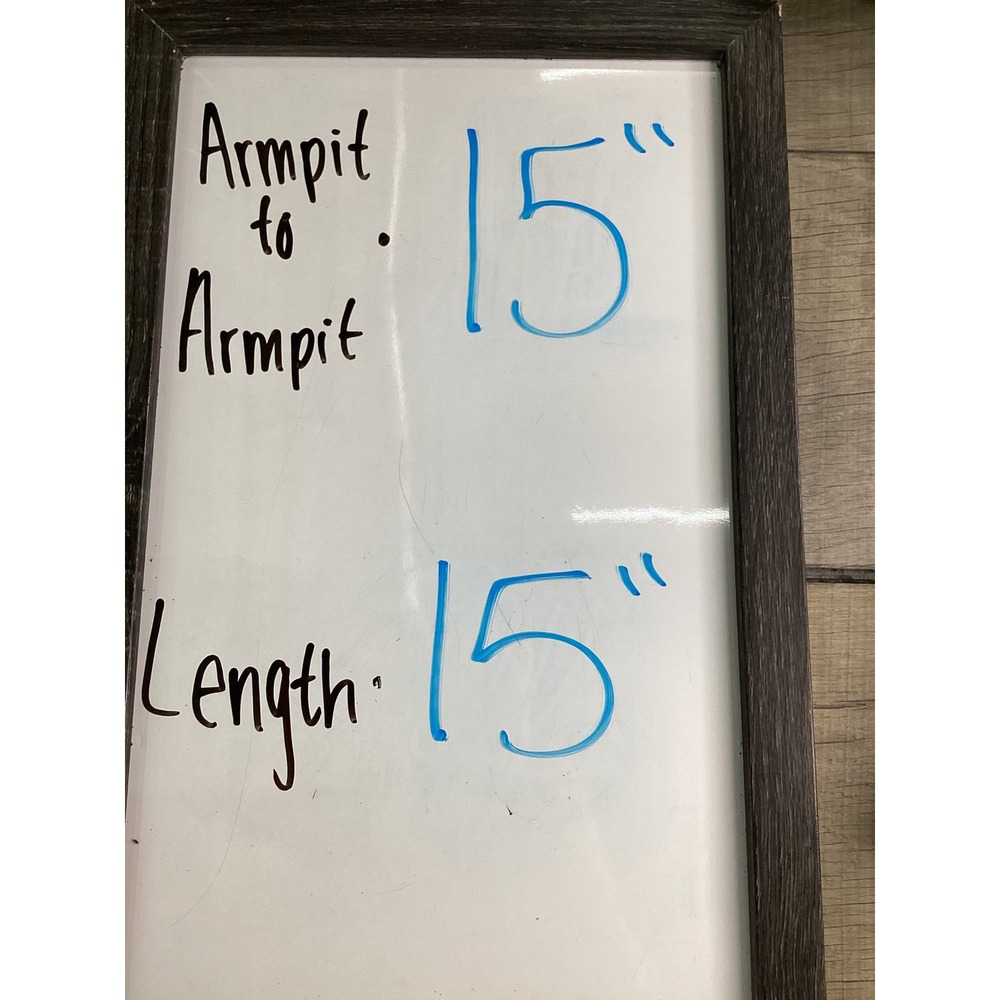 Armpit
to
Armpit
15"
Length:
15"